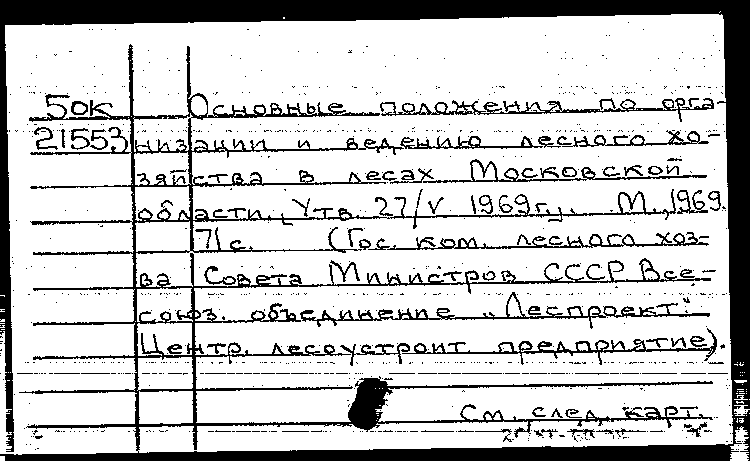 5ок Основные положения по орга-
21553 низации и ведению лесного хо-
зяйства в лесах Московской
области. [Утв. 27/V 1969г]. М., 1969.
71с. (Гос. ком. лесного хоз-
ва Совета Министров СССР Все-
союз. объединение „Леспроект".
Центр. лесоустроит предприятие).
См. след. карт.